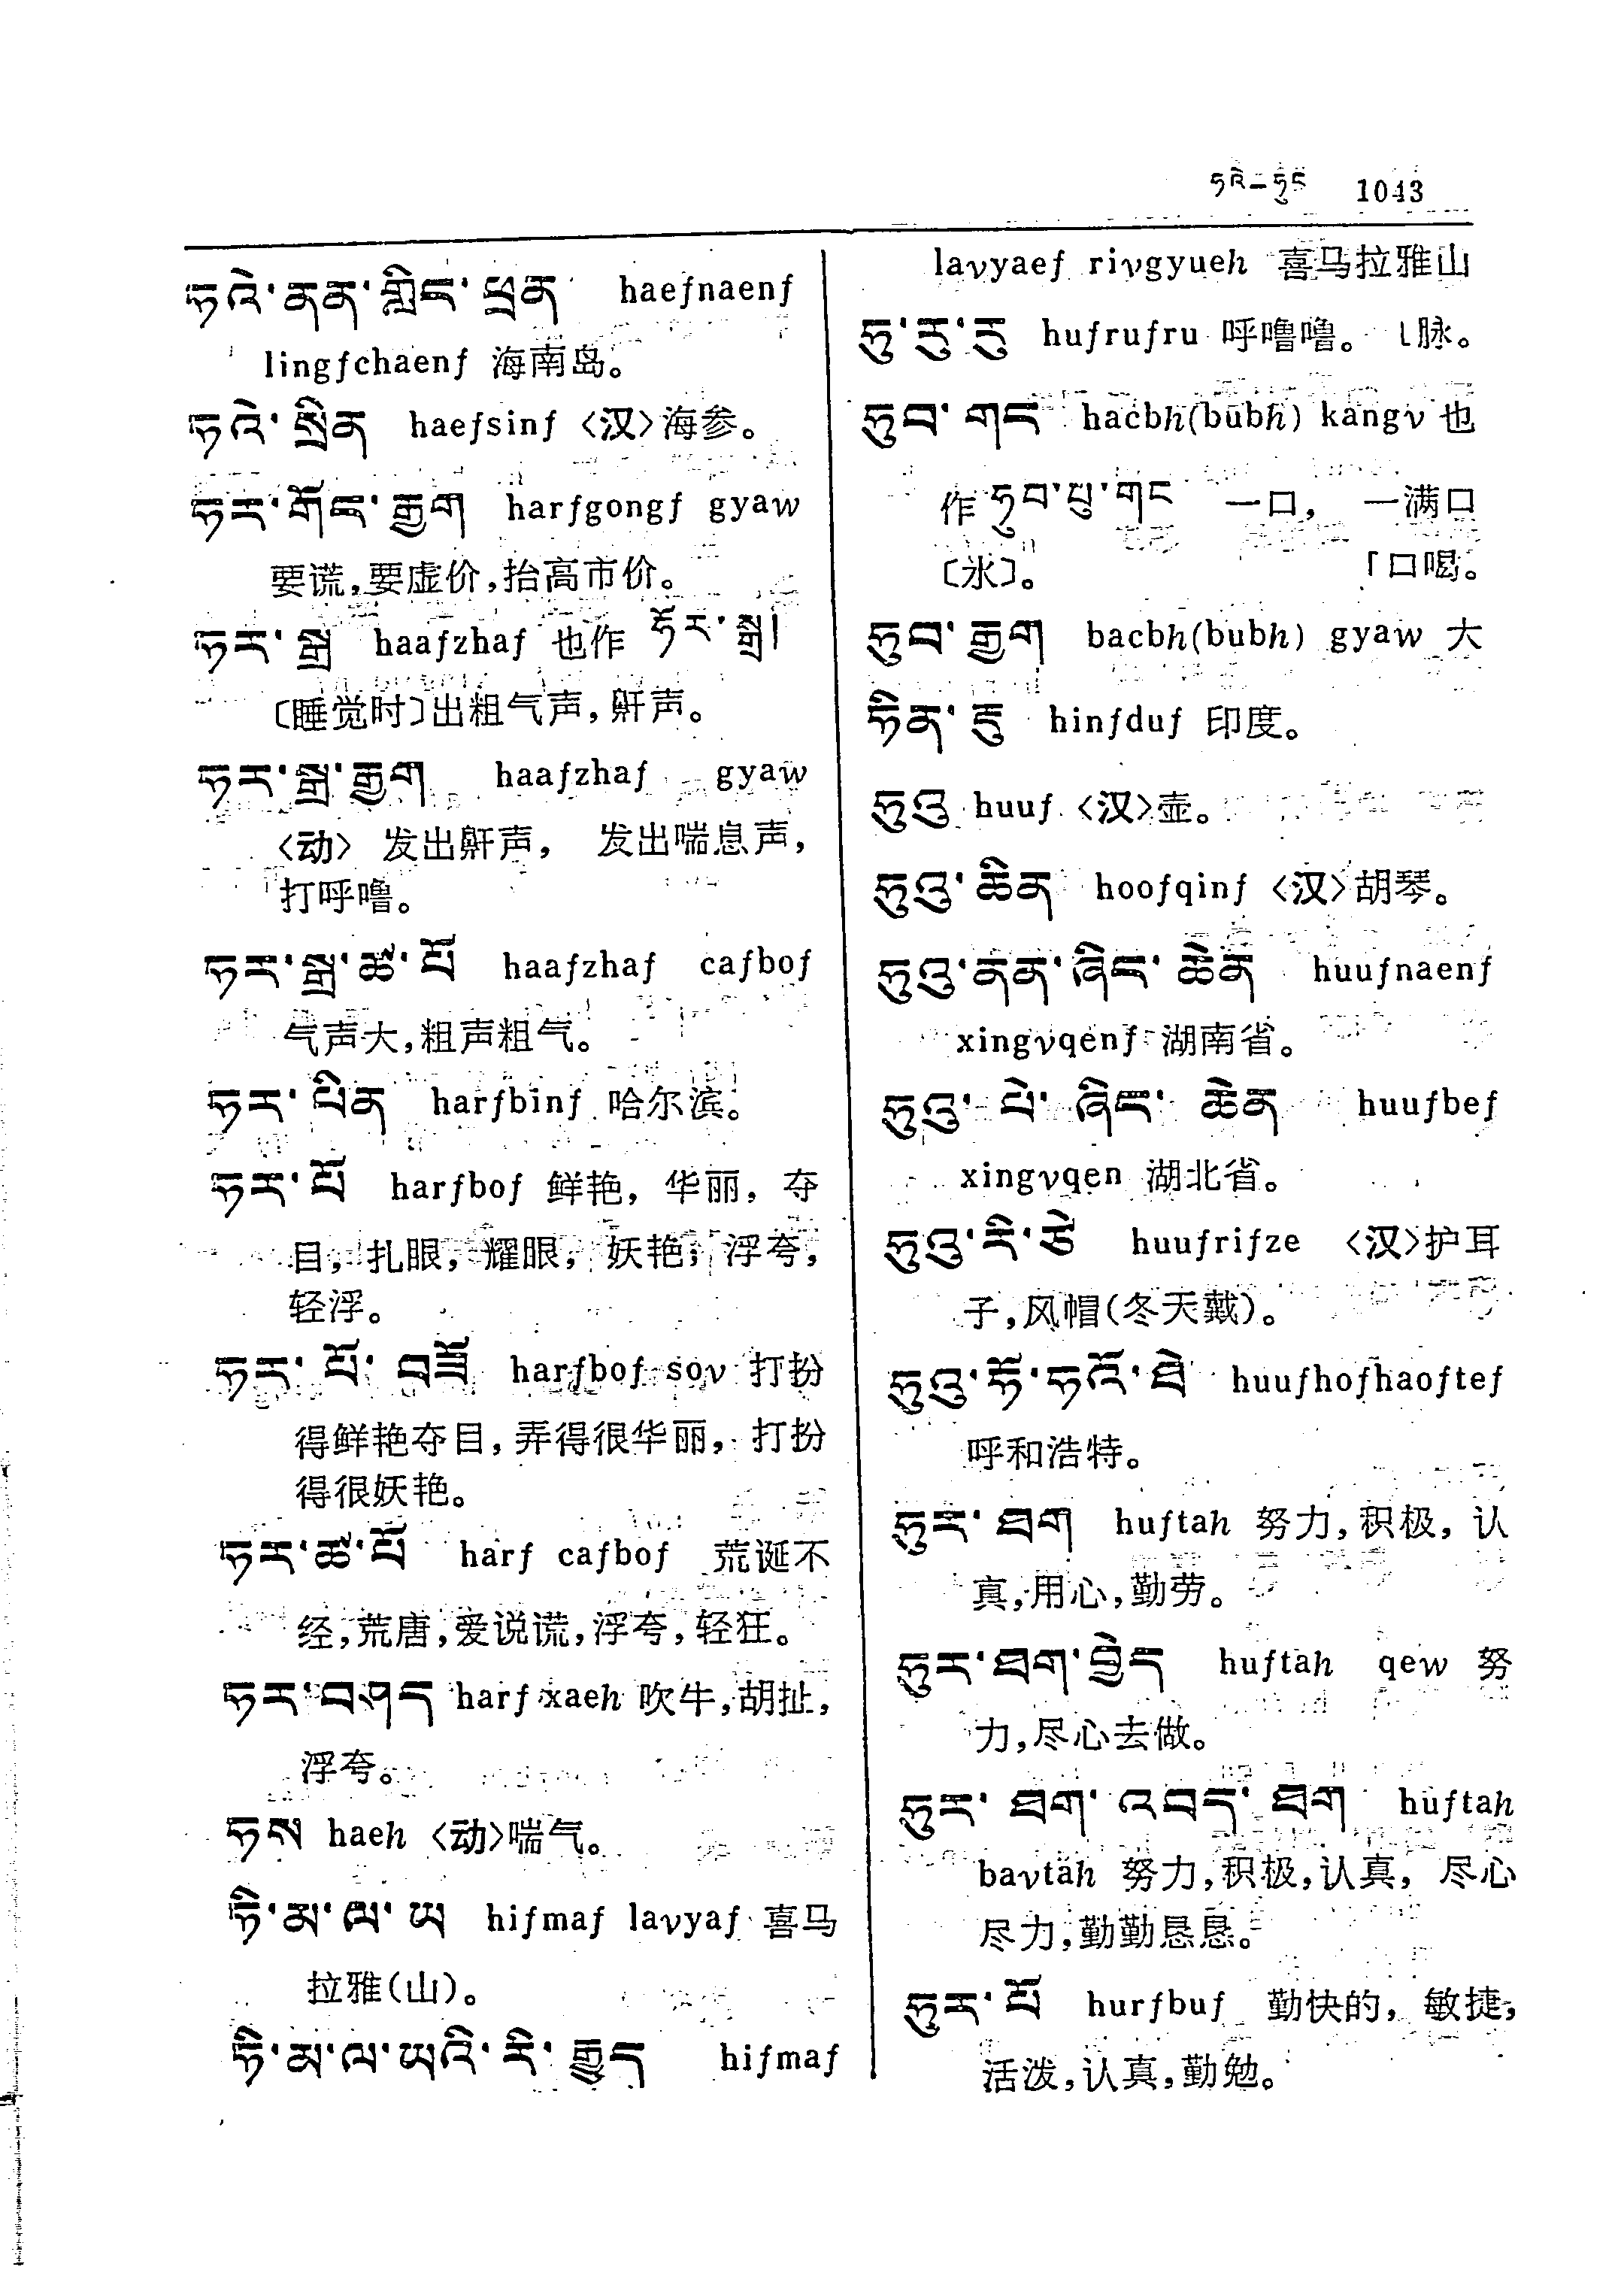 ཧའེ–ཧུང 1043
ཧའེ་ནན་གླིང་ཕྲན haefnaenf
lingfchaenf 海南岛。
ཧའེ་སྲིན haefsinf 〈汉〉海参。
ཧར་གོང་རྒྱག harfgongf gyaw
要谎,要虚价,抬高市价。
ཧར་སྒྲ haafzhaf 也作 ཧོར་སྒྲ།
〔睡觉时〕出粗气声,鼾声。
ཧར་སྒྲ་རྒྱག haafzhaf gyaw
〈动〉 发出鼾声, 发出喘息声,
打呼噜。
ཧར་སྒྲ་ཚ་པོ haafzhaf cafbof
气声大,粗声粗气。
ཧར་པིན harfbinf 哈尔滨。
ཧར་པོ harfbof 鲜艳, 华丽, 夺
目, 扎眼, 耀眼, 妖艳; 浮夸,
轻浮。
ཧར་ པོ་ བཟོ harfbof sov 打扮
得鲜艳夺目,弄得很华丽, 打扮
得很妖艳。
ཧར་ཚ་པོ harf cafbof 荒诞不
经,荒唐,爱说谎,浮夸,轻狂。
ཧར་བཤད harf xaeh 吹牛,胡扯,
浮夸。
ཧས haeh 〈动〉喘气。
ཧི་མ་ལ་ཡ hifmaf lavyaf 喜马
拉雅(山)。
ཧི་མ་ལ་ཡའི་རི་རྒྱུད hifmaf
lavyaef rivgyueh 喜马拉雅山
ཧུ་རུ་རུ hufrufru 呼噜噜。 〔脉。
ཧུབ་གང hacbh(bubh) kangv 也
作 ཧུབ་ཕུ་གང 一口, 一满口
〔水〕。 「口喝。
ཧུབ་རྒྱག bacbh(bubh) gyaw 大
ཧིན་དུ hinfduf 印度。
ཧུའུ huuf 〈汉〉壶。
ཧུའུ་ཆིན hoofqinf 〈汉〉胡琴。
ཧུའུ་ནན་ཞིང་ཆེན huufnaenf
xingvqenf 湖南省。
ཧུའུ་ པེ་ ཞིང་ ཆེན huufbef
xingvqen 湖北省。
ཧུའུ་རི་ཙེ huufrifze 〈汉〉护耳
子,风帽(冬天戴)。
ཧུའུ་ཧོ་ཧའོ་ཐེ huufhofhaoftef
呼和浩特。
ཧུར་ཐག huftah 努力,积极, 认
真,用心,勤劳。
ཧུར་ཐག་བྱེད huftah qew 努
力,尽心去做。
ཧུར་ ཐག་ འབད་ ཐག huftah
bavtah 努力,积极,认真, 尽心
尽力,勤勤恳恳。
ཧུར་པོ hurfbuf 勤快的, 敏捷,
活泼,认真,勤勉。